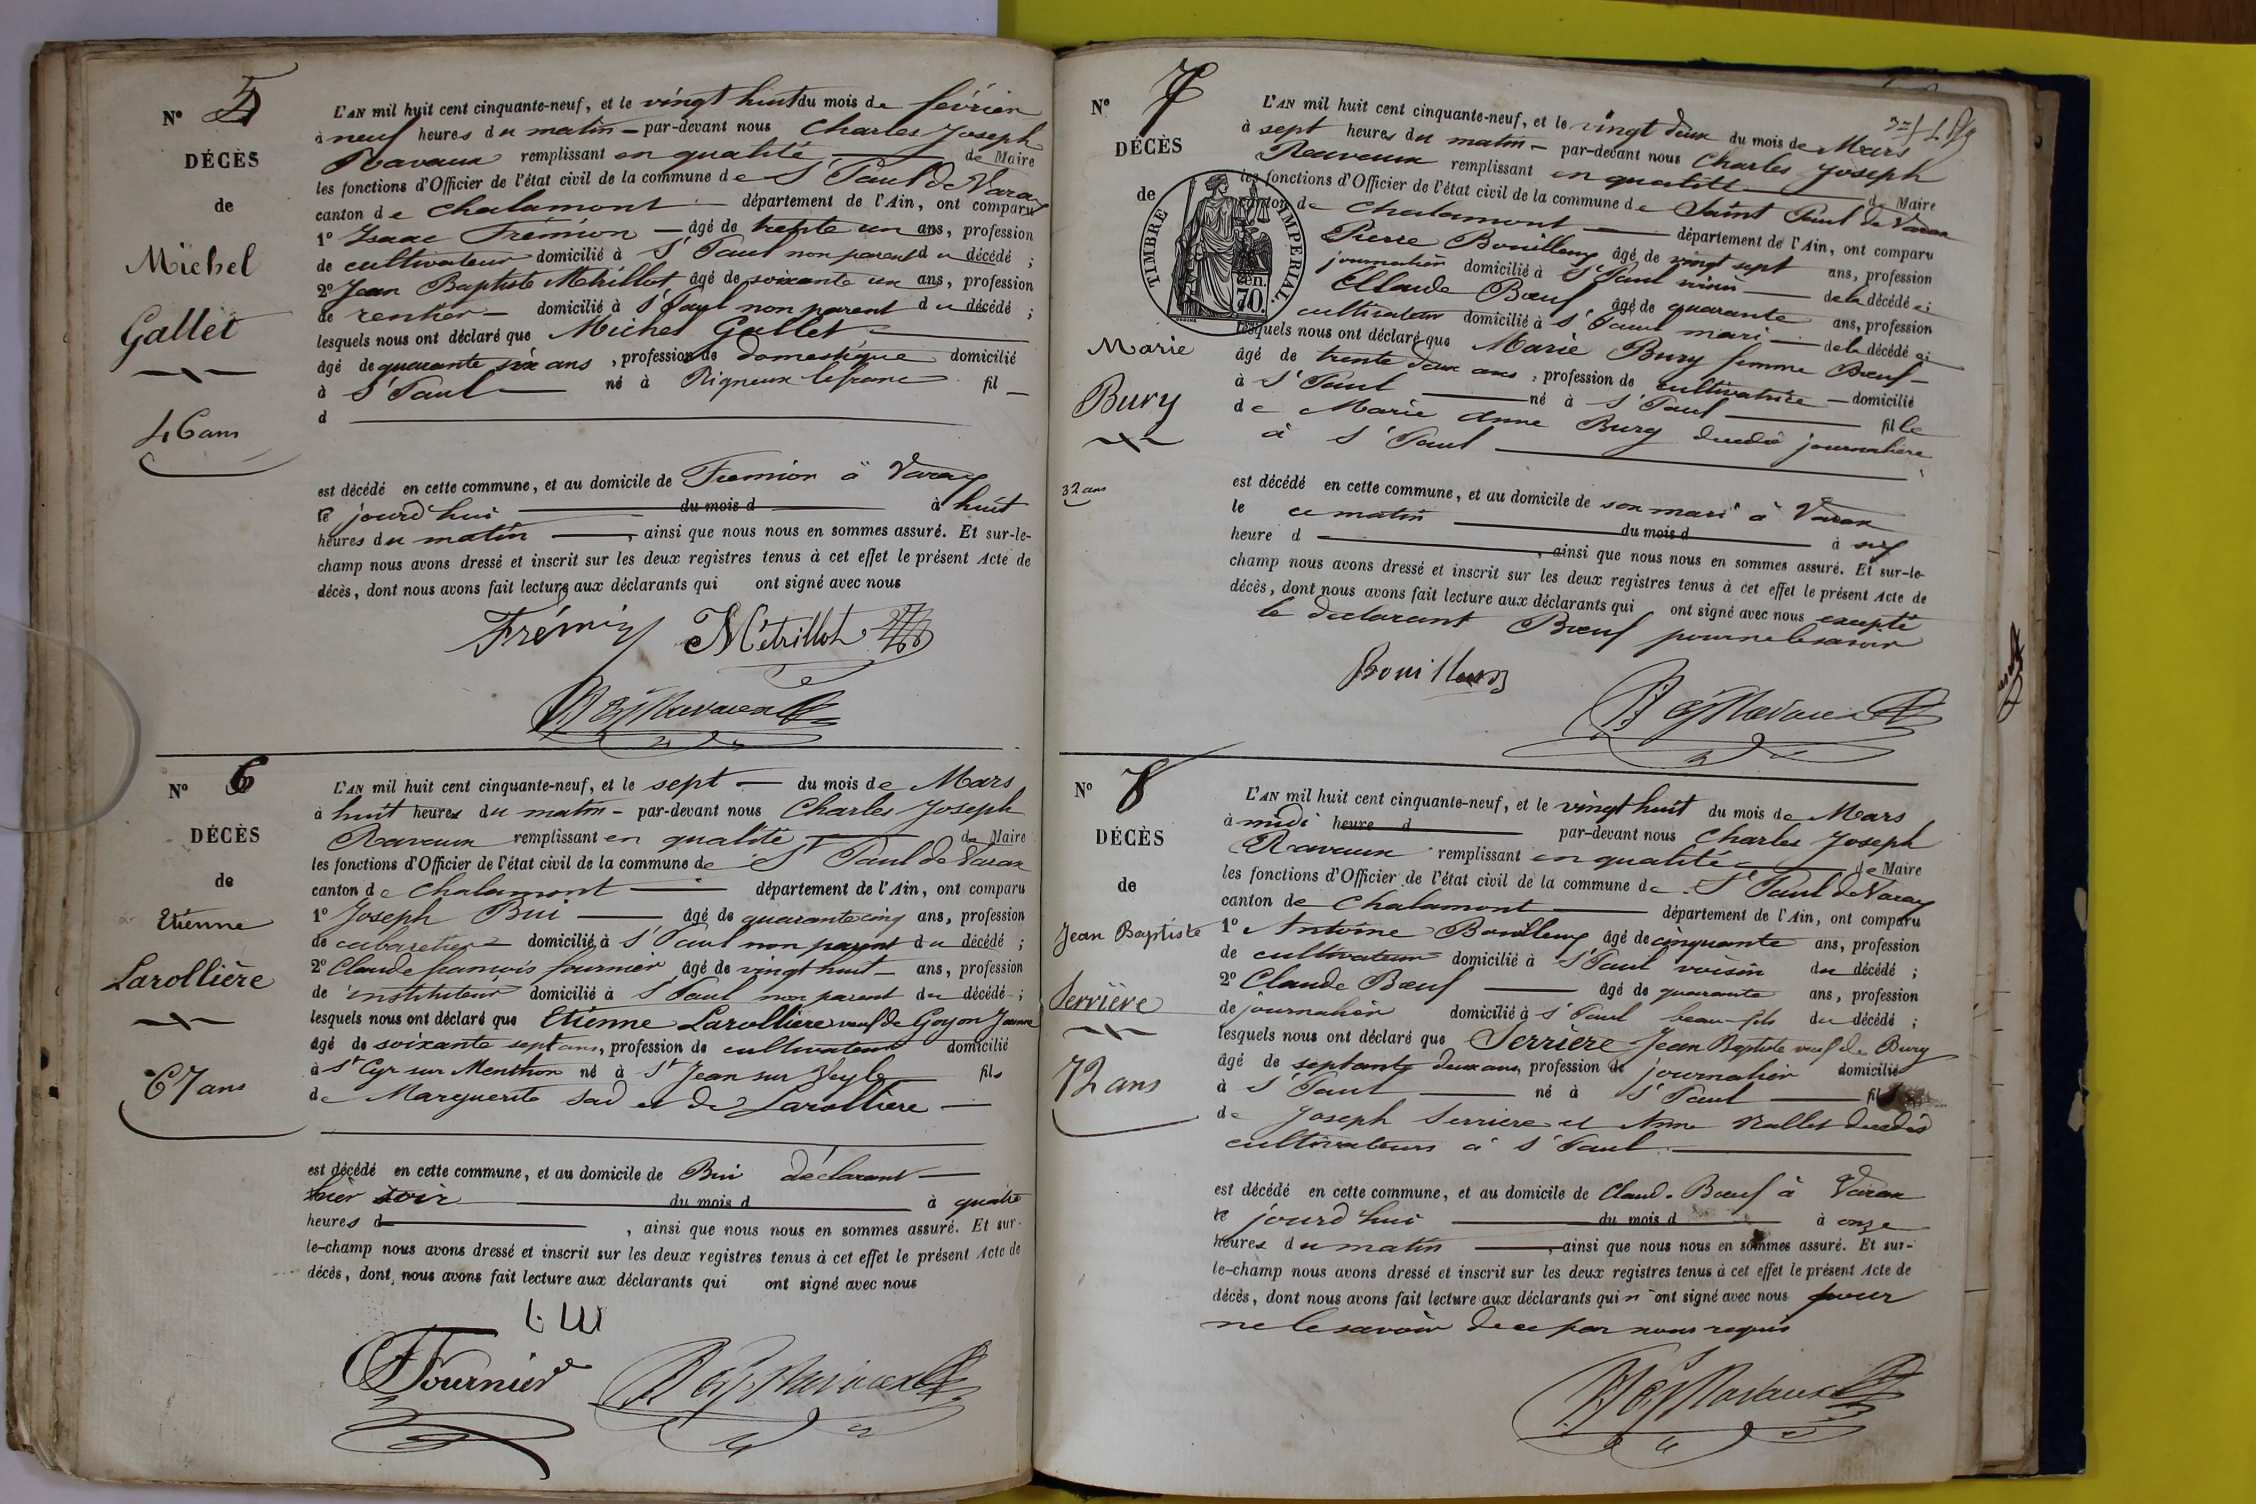 N° 5
DÉCÈS
de
Michel
Gallet
46 ans
L'AN mil huit cent cinquante-neuf, et le vingt huit du mois de février
à neuf heures du matin - par-devant nous Charles Joseph
Ravaux remplissant en qualité de Maire
les fonctions d'Officier de l'état civil de la commune de St Paul de Varax
canton de Chalamont département de l'Ain, ont comparu
1° Isaac Frémion âgé de trente un ans, profession
de cultivateur domicilié à St Paul non parent du décédé ;
2° Jean Baptiste Métrillot âgé de soixante un ans, profession
de rentier domicilié à St Paul non parent du décédé ;
lesquels nous ont déclaré que Michel Gallet
âgé de quarante six ans, profession de domestique domicilié
à St Paul né à Rigneux lefranc fil
d
est décédé en cette commune, et au domicile de Fremion à Varax
le jourd'hui du mois d à huit
heures du matin, ainsi que nous nous en sommes assuré. Et sur-le-
champ nous avons dressé et inscrit sur les deux registres tenus à cet effet le présent Acte de
décès, dont nous avons fait lecture aux déclarants qui ont signé avec nous
Frémion Métrillot
Ravaux
N° 6
DÉCÈS
de
Etienne
Larollière
67 ans
L'AN mil huit cent cinquante-neuf, et le sept du mois de Mars
à huit heures du matin - par-devant nous Charles Joseph
Ravaux remplissant en qualité de Maire
les fonctions d'Officier de l'état civil de la commune de St Paul de Varax
canton de Chalamont département de l'Ain, ont comparu
1° Joseph Bui âgé de quarante cinq ans, profession
de cabaretier domicilié à St Paul non parent du décédé ;
2° Claude françois fournier âgé de vingt huit ans, profession
de instituteur domicilié à St Paul non parent du décédé ;
lesquels nous ont déclaré que Etienne Larolliere veuf de Goyon Jeanne
âgé de soixante sept ans, profession de cultivateur domicilié
à St Cyr sur Menthon né à St Jean sur Veyle fils
de Marguerite Sad et de Larolliere
est décédé en cette commune, et au domicile de Bui déclarant
hier soir du mois d à quatre
heures d , ainsi que nous nous en sommes assuré. Et sur-
le-champ nous avons dressé et inscrit sur les deux registres tenus à cet effet le présent Acte de
décès, dont nous avons fait lecture aux déclarants qui ont signé avec nous
Fournier Ravaux
N° 7
DÉCÈS
de
Marie
Bury
32 ans
TIMBRE IMPERIAL
70 cen.
L'AN mil huit cent cinquante-neuf, et le vingt deux du mois de Mars
à sept heures du matin - par-devant nous Charles Joseph
Ravaux remplissant en qualité de Maire
les fonctions d'Officier de l'état civil de la commune de Saint Paul de Varax
canton de Chalamont département de l'Ain, ont comparu
Pierre Bouilloux âgé de vingt sept ans, profession
journalier domicilié à St Paul voisin de la décédée ;
Claude Bœuf âgé de quarante ans, profession
cultivateur domicilié à St Paul mari de la décédée ;
lesquels nous ont déclaré que Marie Bury femme Bœuf
âgé de trente deux ans, profession de cultivatrice domicilié
à St Paul né à St Paul fille
de Marie Anne Bury décédée journalière
à St Paul
est décédé en cette commune, et au domicile de son mari à Varax
le ce matin du mois d à six
heure d , ainsi que nous nous en sommes assuré. Et sur-le-
champ nous avons dressé et inscrit sur les deux registres tenus à cet effet le présent Acte de
décès, dont nous avons fait lecture aux déclarants qui ont signé avec nous excepté
le declarant Bœuf pour ne le savoir
Bouilloux
Ravaux
N° 8
DÉCÈS
de
Jean Baptiste
Serrière
72 ans
L'AN mil huit cent cinquante-neuf, et le vingt huit du mois de Mars
à midi heure d par-devant nous Charles Joseph
Ravaux remplissant en qualité de Maire
les fonctions d'Officier de l'état civil de la commune de St Paul de Varax
canton de Chalamont département de l'Ain, ont comparu
1° Antoine Bouilloux âgé de cinquante ans, profession
de cultivateur domicilié à St Paul voisin du décédé ;
2° Claude Bœuf âgé de quarante ans, profession
de journalier domicilié à St Paul beau-fils du décédé ;
lesquels nous ont déclaré que Serrière Jean Baptiste veuf de Bury
âgé de septante deux ans, profession de journalier domicilié
à St Paul né à St Paul fils
de Joseph Serriere et Anne Vallet décédés
cultivateurs à St Paul
est décédé en cette commune, et au domicile de Claude Bœuf à Varax
le jourd'hui du mois d à onze
heures du matin, ainsi que nous nous en sommes assuré. Et sur-
le-champ nous avons dressé et inscrit sur les deux registres tenus à cet effet le présent Acte de
décès, dont nous avons fait lecture aux déclarants qui n'ont signé avec nous pour
ne le savoir de ce par nous requis
Ravaux